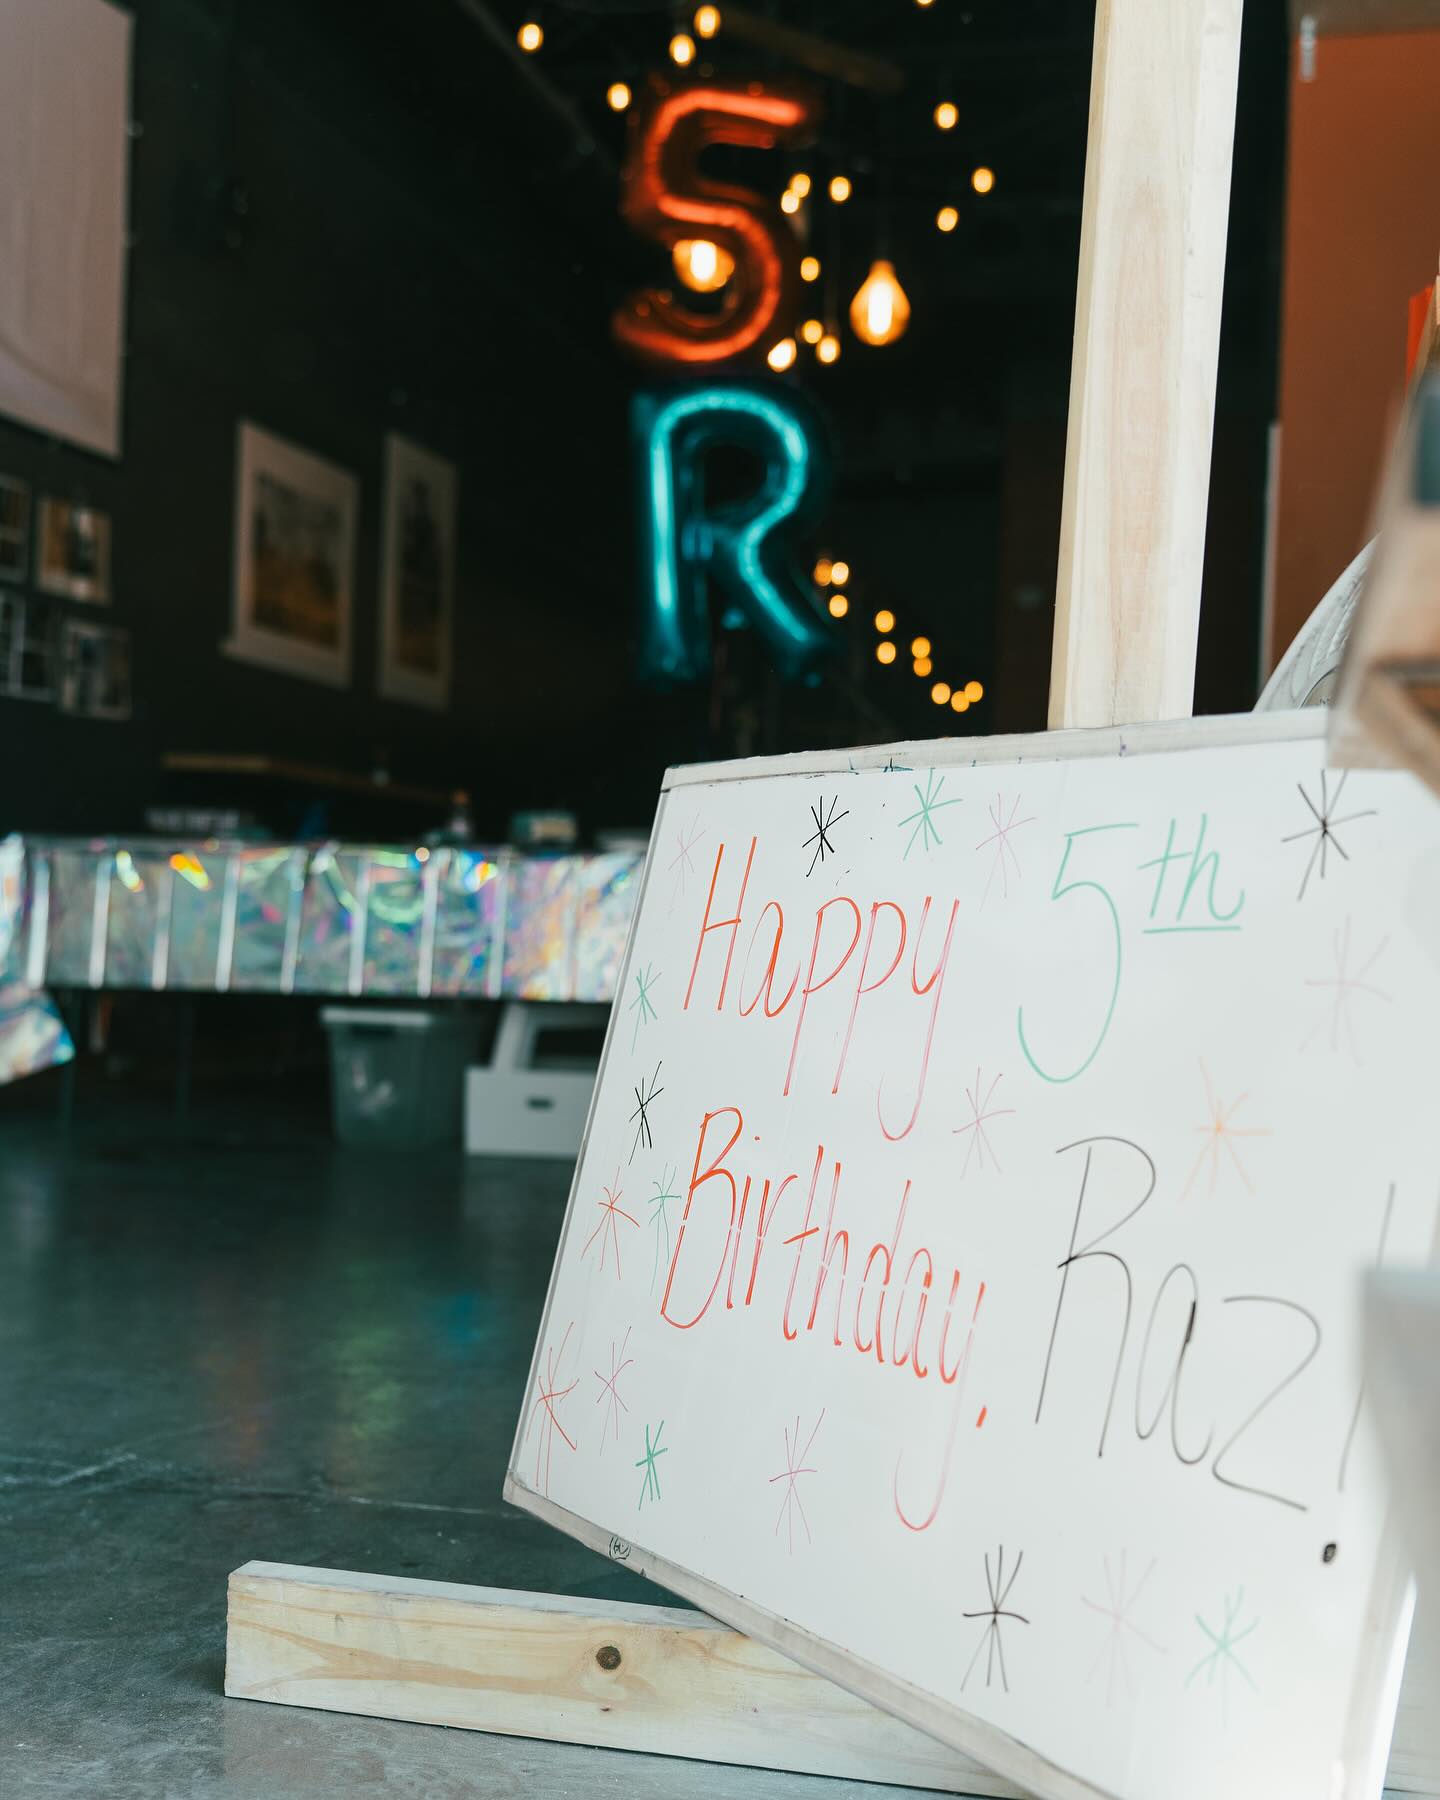 5
R
Happy 5th
Birthday. Raz!